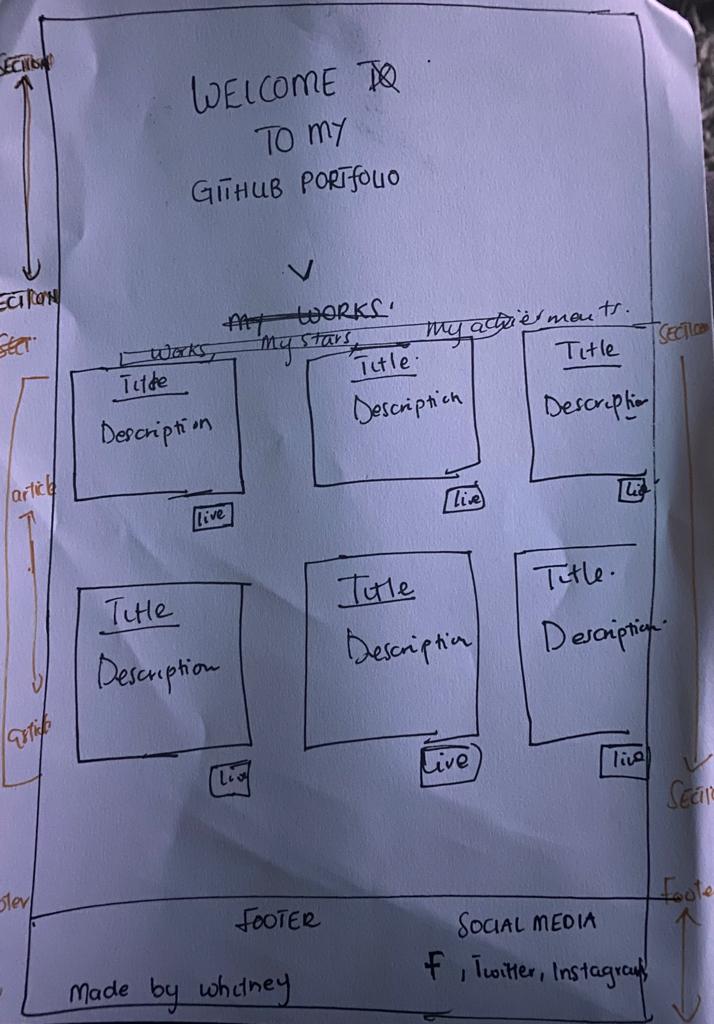 SECTION
WELCOME TO
TO MY
GITHUB PORTFOLIO
SECTION
MY WORKS.
SECT.
Works, My stars, My achievements.
SECTION
Title
Description
live
Title.
Description
live
Title
Description
live
article
Title
Description
live
Title
Description
live
Title.
Description.
live
article
SECTI
oter
Foote
FOOTER
SOCIAL MEDIA
Made by whitney
F, Twitter, Instagram